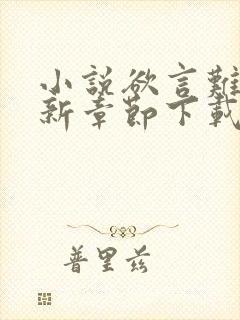 小說欲言難
新章節下載
普里茲